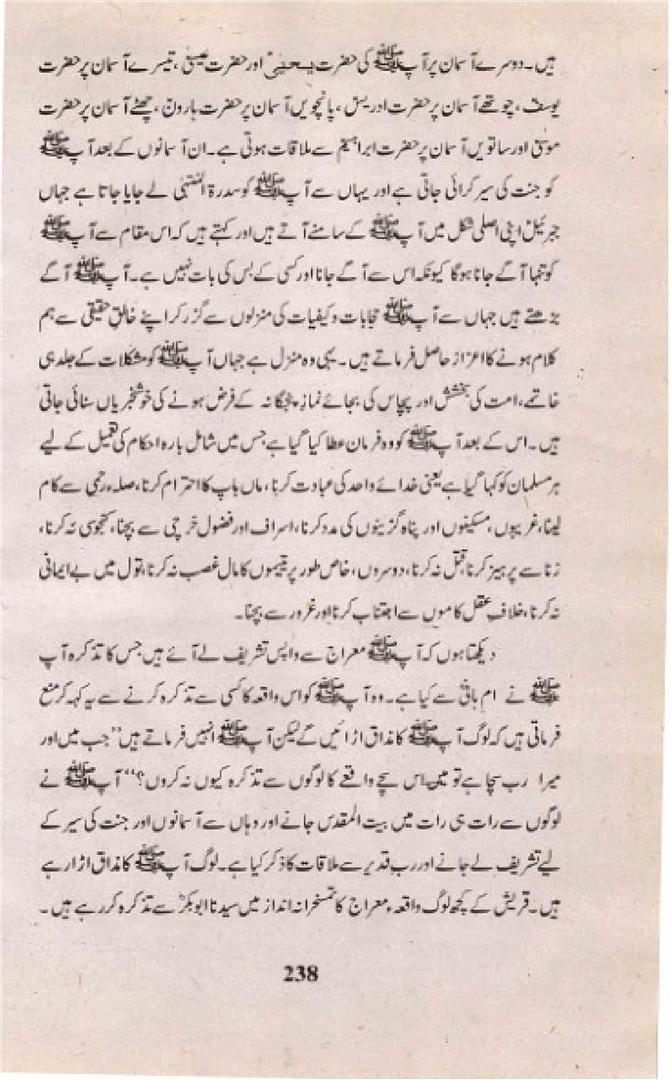 ہیں۔ دوسرے آسمان پر آپ ﷺ کی حضرت یحییٰؑ اور حضرت عیسیٰؑ، تیسرے آسمان پر حضرت
یوسفؑ، چوتھے آسمان پر حضرت ادریسؑ، پانچویں آسمان پر حضرت ہارونؑ، چھٹے آسمان پر حضرت
موسیٰؑ اور ساتویں آسمان پر حضرت ابراہیمؑ سے ملاقات ہوتی ہے۔ ان آسمانوں کے بعد آپ ﷺ
کو جنت کی سیر کرائی جاتی ہے اور یہاں سے آپ ﷺ کو سدرۃ المنتہیٰ لے جایا جاتا ہے جہاں
جبرئیلؑ اپنی اصلی شکل میں آپ ﷺ کے سامنے آتے ہیں اور کہتے ہیں کہ اس مقام سے آپ ﷺ
کو تنہا آگے جانا ہوگا کیونکہ اس سے آگے جانا اور کسی کے بس کی بات نہیں ہے۔ آپ ﷺ آگے
بڑھتے ہیں جہاں سے آپ ﷺ حجابات و کیفیات کی منزلوں سے گزر کر اپنے خالقِ حقیقی سے ہم
کلام ہونے کا اعزاز حاصل فرماتے ہیں۔ یہی وہ منزل ہے جہاں آپ ﷺ کو مشکلات کے جلد ہی
خاتمے، امت کی بخشش اور پچاس کی بجائے نمازِ پنجگانہ کے فرض ہونے کی خوشخبریاں سنائی جاتی
ہیں۔ اس کے بعد آپ ﷺ کو وہ فرمان عطا کیا گیا ہے جس میں شامل بارہ احکام کی تعمیل کے لیے
ہر مسلمان کو کہا گیا ہے یعنی خدائے واحد کی عبادت کرنا، ماں باپ کا احترام کرنا، صلہء رحمی سے کام
لینا، غریبوں، مسکینوں اور پناہ گزینوں کی مدد کرنا، اسراف اور فضول خرچی سے بچنا، کنجوسی نہ کرنا،
زنا سے پرہیز کرنا، قتل نہ کرنا، دوسروں، خاص طور پر یتیموں کا مال غصب نہ کرنا، تول میں بے ایمانی
نہ کرنا، خلافِ عقل کاموں سے اجتناب کرنا اور غرور سے بچنا۔
دیکھتا ہوں کہ آپ ﷺ معراج سے واپس تشریف لے آئے ہیں جس کا تذکرہ آپ
ﷺ نے ام ہانیؓ سے کیا ہے۔ وہ آپ ﷺ کو اس واقعہ کا کسی سے تذکرہ کرنے سے یہ کہہ کر منع
فرماتی ہیں کہ لوگ آپ ﷺ کا مذاق اڑائیں گے لیکن آپ ﷺ انہیں فرماتے ہیں ”جب میں اور
میرا رب سچا ہے تو میں اس سچے واقعے کا لوگوں سے تذکرہ کیوں نہ کروں؟“ آپ ﷺ نے
لوگوں سے رات ہی رات میں بیت المقدس جانے اور وہاں سے آسمانوں اور جنت کی سیر کے
لیے تشریف لے جانے اور ربِ قدیر سے ملاقات کا ذکر کیا ہے۔ لوگ آپ ﷺ کا مذاق اڑا رہے
ہیں۔ قریش کے کچھ لوگ واقعہء معراج کا تمسخرانہ انداز میں سیدنا ابوبکرؓ سے تذکرہ کر رہے ہیں۔
238